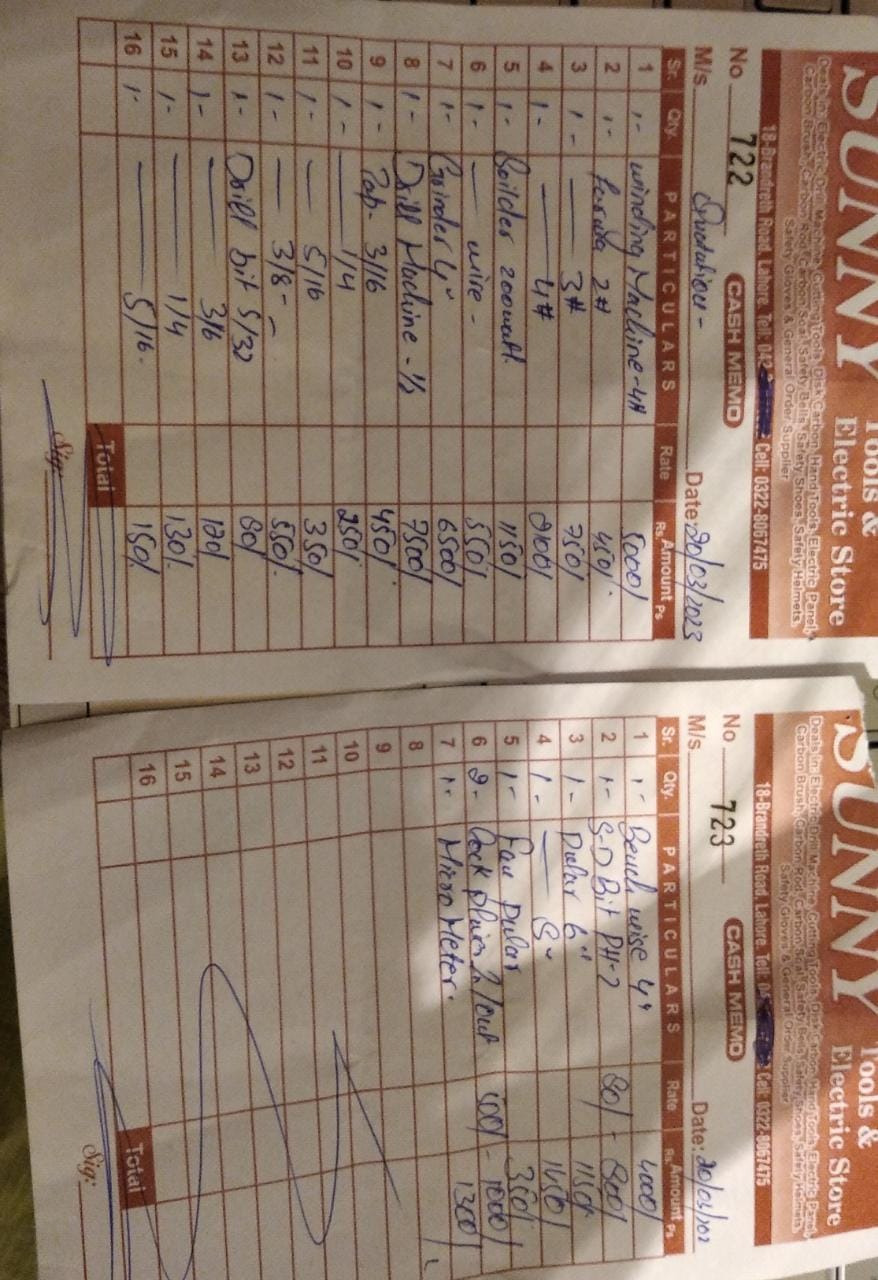 SUNNY Tools &
Electric Store
Deals in: Electric Drill Machine, Cutting Tools, Disk Carbon, Hand Tools, Electric Panel,
Carbon Brush, Carbon Rod, Carbon Seal, Safety Belts, Safety Shoes, Safety Helmets
Safety Gloves & General Order Supplier
18-Brandreth Road, Lahore. Tell: 042 Cell: 0322-8067475
No 722 CASH MEMO
M/s. Quotation - Date: 20/03/2023
Sr. Qty. PARTICULARS Rate Amount Rs. Ps
1 1- winding Machine-4# 5000/
2 1- 2# 450/.
3 1- — 3# 750/
4 1- — 4# 2100/
5 1- Soilder 200watt. 1150/
6 1- — wire - 550/.
7 1- Grinder 4" 6500/
8 1- Drill Machine - 1/2 7500/
9 1- Tap. 3/16 450/.
10 1- — 1/4 250/.
11 1- — 5/16 350/
12 1- — 3/8 - 550/.
13 1- Drill bit 5/32 80/
14 1- — 3/6 120/
15 1- — 1/4 130/.
16 1- — 5/16. 150/.
Total
Sig:
SUNNY Tools &
Electric Store
Deals in: Electric Drill Machine, Cutting Tools, Disk Carbon, Hand Tools, Electric Panel,
Carbon Brush, Carbon Rod, Carbon Seal, Safety Belts, Safety Shoes, Safety Helmets
Safety Gloves & General Order Supplier
18-Brandreth Road, Lahore. Tell: 04 Cell: 0322-8067475
No 723 CASH MEMO
M/s. Date: 20/03/202
Sr. Qty. PARTICULARS Rate Amount Rs. Ps
1 1- Bench wise 4" 4000/
2 1- S-D Bit PH-2 80/ - 800/
3 1- Pular 6" 1150/
4 1- — 8" 1450/
5 1- Fan Pular 350/
6 2- Lock Pliers In/out 500/ - 1000/
7 1- Micro Meter. 1300/
8
9
10
11
12
13
14
15
16
Total
Sig: